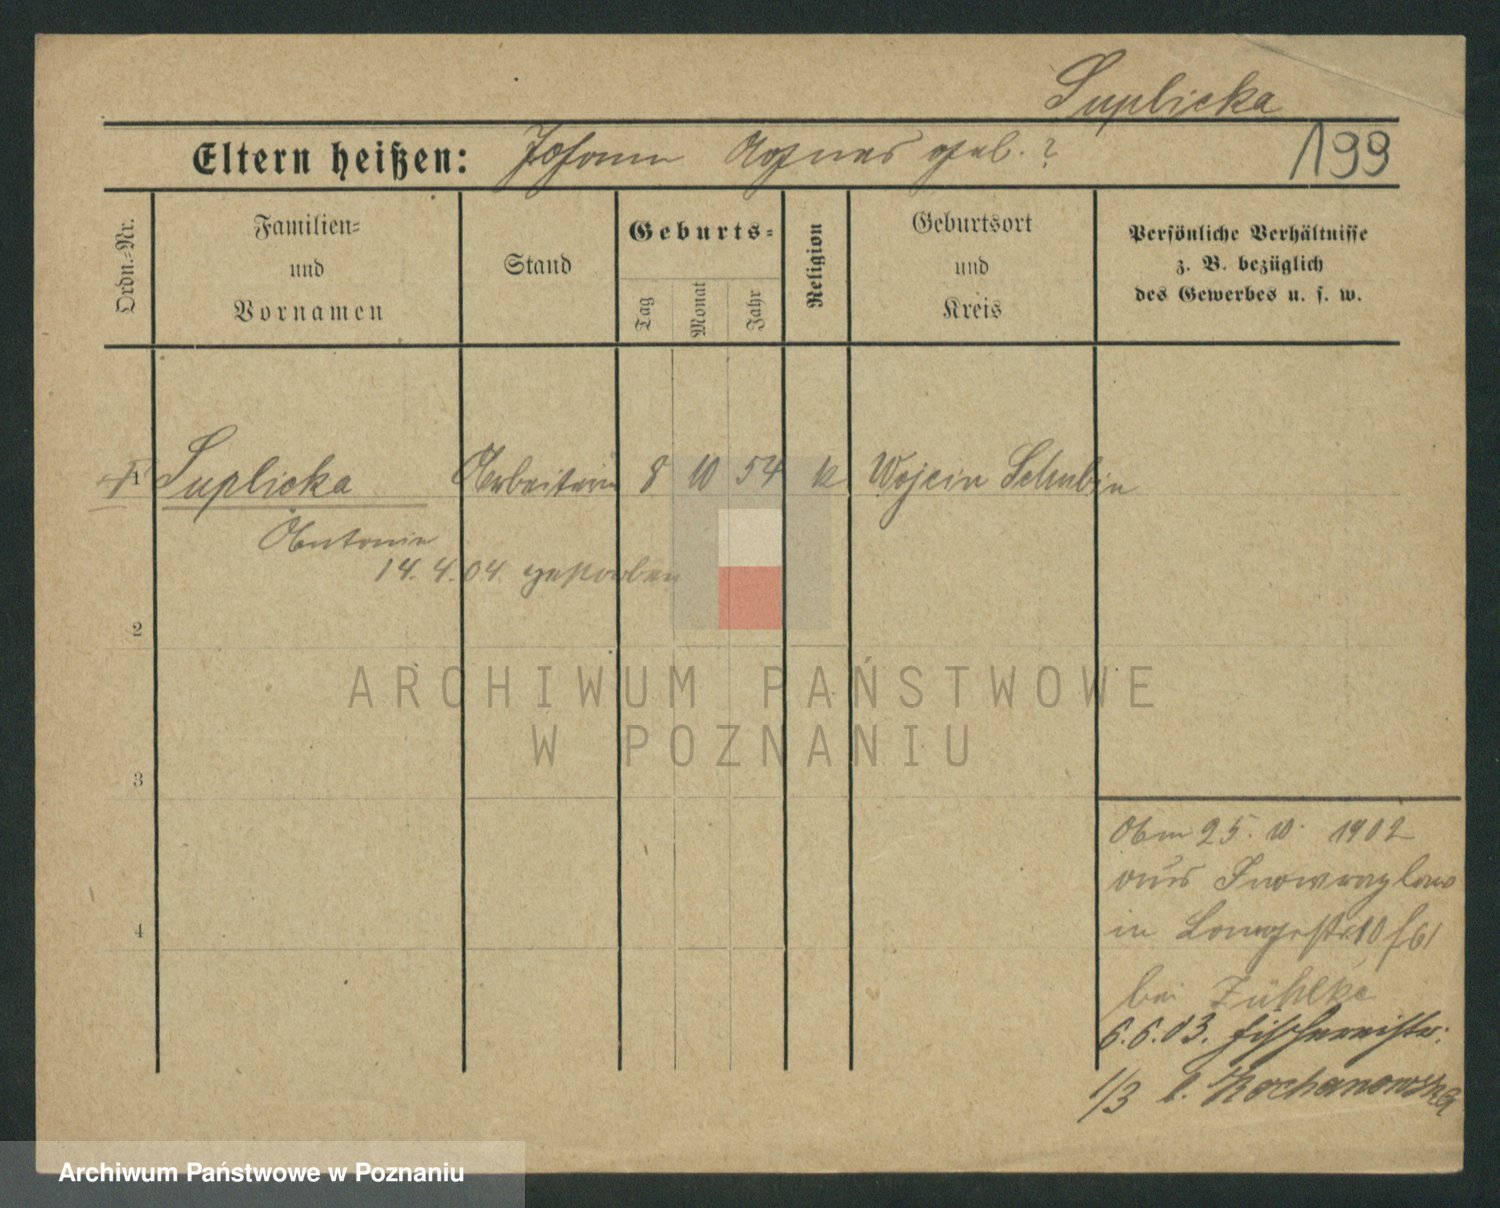 Suplicka
Eltern heißen: Johann Agnes geb. ?
199
Ordn.-Nr.
Familien-
und
Vornamen
Stand
Geburts-
Tag
Monat
Jahr
Religion
Geburtsort
und
Kreis
Persönliche Verhältnisse
z. B. bezüglich
des Gewerbes u. s. w.
1 Suplicka Arbeiterin 8 10 54 k Wojcin Schubin
Antonie
14. 4. 04. gestorben
2
3
4
ARCHIWUM PAŃSTWOWE
W POZNANIU
Am 25. 10. 1902
aus Inowrazlaw
in Langestr. 10
bei Zühlke
6.6.03. Fischereistr.
1/3 b. Kochanowska
Archiwum Państwowe w Poznaniu